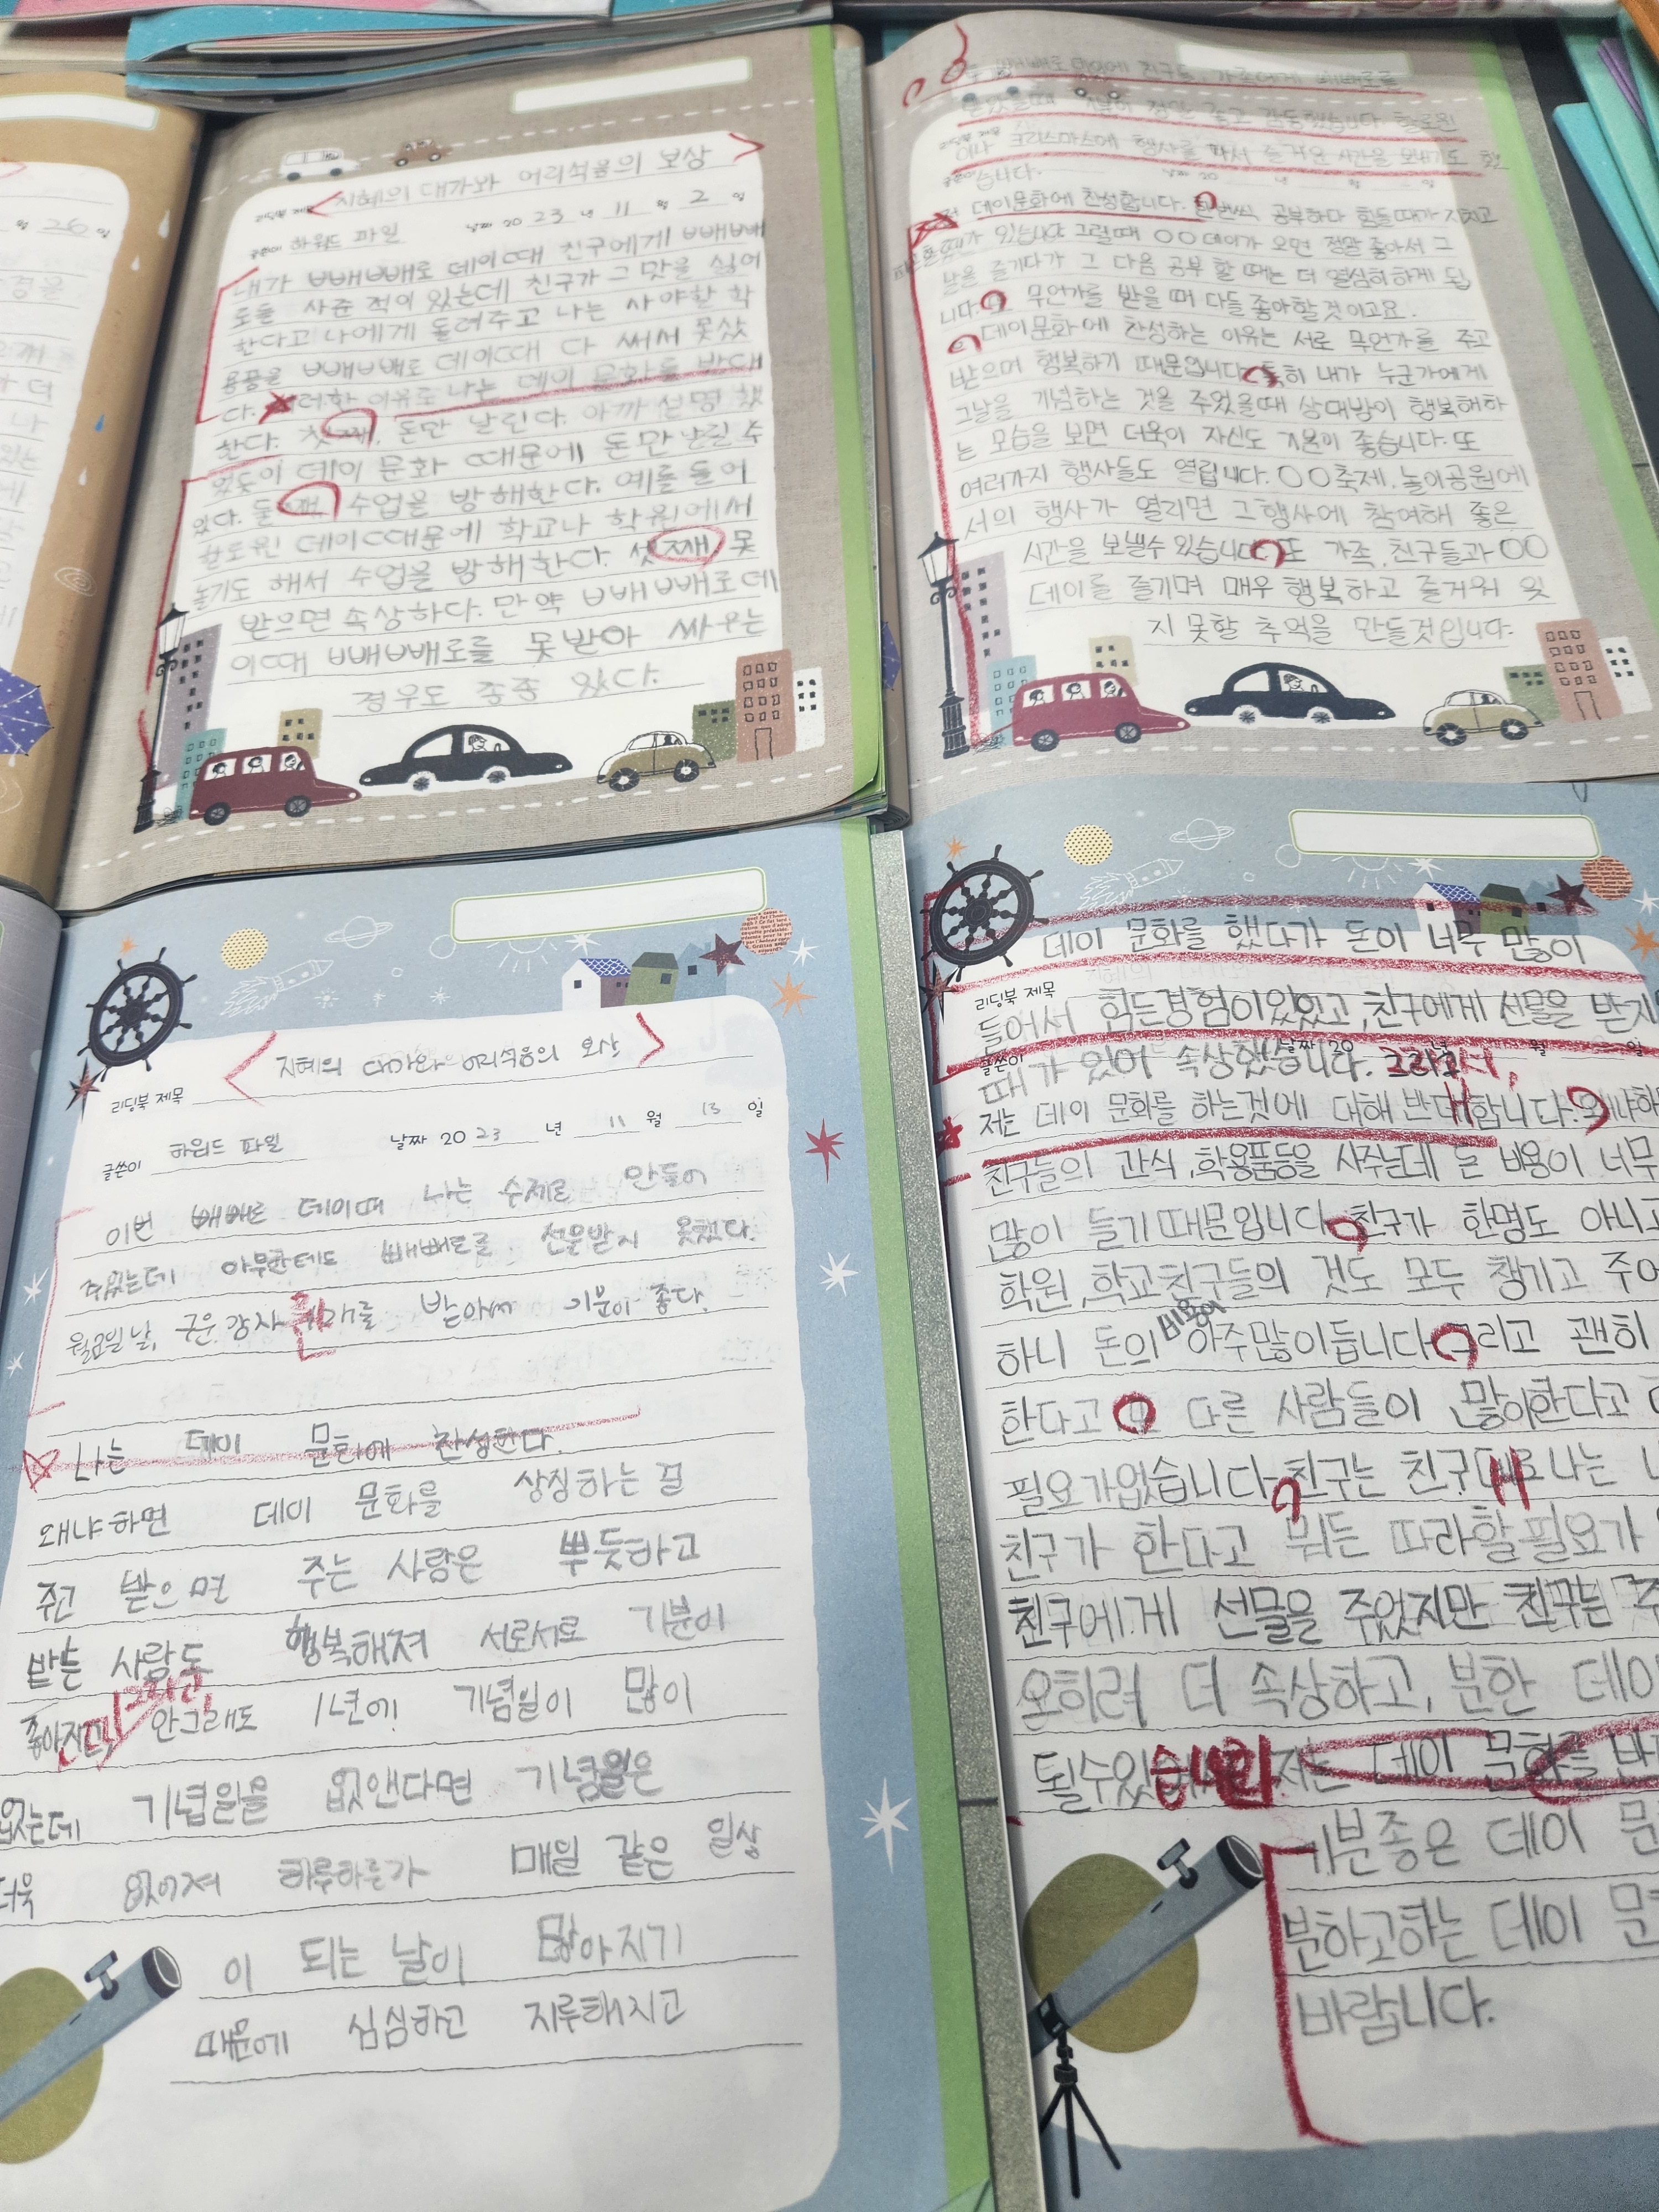 지혜의 대가와 어리석음의 보상
2023 년 11 월 2 일
하워드 파일
내가 빼빼로 데이때 친구에게 빼빼
로를 사준 적이 있는데 친구가 그 맛을 싫어
한다고 나에게 돌려주고 나는 사야할 학
용품을 빼빼로 데이때 다 써서 못샀
다. 러한 이유로 나는 데이 문화를 반대
한다. 첫째, 돈만 날린다. 아까 설명 했
듯이 데이 문화 때문에 돈만 날릴 수
있다. 둘째, 수업을 방해한다. 예를 들어
할로윈 데이때문에 학교나 학원에서
놀기도 해서 수업을 방해한다. 셋째 못
받으면 속상하다. 만약 빼빼로데
이때 빼빼로를 못받아 싸우는
경우도 종종 있다.
빼빼로 데이에 친구들, 가족에게 빼빼로를
기분이 정말 좋고 감동했습니다. 할로윈
이나 크리스마스에 행사를 가서 즐거운 시간을 보내기도 했
습니다.
전 데이문화에 찬성합니다. 공부하다 힘들때가
있습니다 그럴때 ○○데이가 오면 정말 좋아서 그
날을 즐기다가 그 다음 공부 할 때는 더 열심히 하게 됩
니다. 무언가를 받을 때 다들 좋아할 것이고요.
데이문화에 찬성하는 이유는 서로 무언가를 주고
받으며 행복하기 때문입니다. 특히 내가 누군가에게
그날을 기념하는 것을 주었을때 상대방이 행복해하
는 모습을 보면 더욱이 자신도 기분이 좋습니다. 또
여러가지 행사들도 열립니다. ○○축제, 놀이공원에
서의 행사가 열리면 그행사에 참여해 좋은
시간을 보낼수 있습니다. 또 가족, 친구들과 ○○
데이를 즐기며 매우 행복하고 즐거워 잊
지 못할 추억을 만들것입니다.
지혜의 대가와 어리석음의 보상
리딩북 제목
글쓴이 하워드 파일 날짜 2023 년 11 월 13 일
이번 빼빼로 데이때 나는 수제로 만들어
주었는데 아무한테도 빼빼로를 선물받지 못했다.
월요일날, 구운 감자 를 받아서 기분이 좋다.
나는 데이 문화에 찬성한다.
왜냐하면 데이 문화를 상징하는 걸
주고 받으면 주는 사람은 뿌듯하고
받는 사람도 행복해져 서로서로 기분이
좋아진다, 그리고, 안그래도 1년에 기념일이 많이
없는데 기념일을 없앤다면 기념일은
더욱 없어져 하루하루가 매일 같은 일상
이 되는 날이 많아지기
때문에 심심하고 지루해지고
데이 문화를 했다가 돈이 너무 많이
리딩북 제목
들어서 힘든경험이있었고, 친구에게 선물을 받지
글쓴이 날짜 20 년 월 일
때가 있어 속상했습니다. 그래서,
저는 데이 문화를 하는것에 대해 반대합니다. 왜냐하
친구들의 간식, 학용품등을 사주는데 돈 비용이 너무
많이 들기 때문입니다. 친구가 한명도 아니고
학원, 학교친구들의 것도 모두 챙기고 주어
하니 돈의 비용이 아주많이듭니다. 그리고 괜히
한다고 다른 사람들이 많이한다고
필요가없습니다. 친구는 친구대로 나는 나
친구가 한다고 뭐든 따라할 필요가
친구에게 선물을 주었지만 친구는 주
오히려 더 속상하고, 분한 데이
될수있습니다. 저는 데이 문화를 반
기분좋은 데이 문
분하고하는 데이 문
바랍니다.